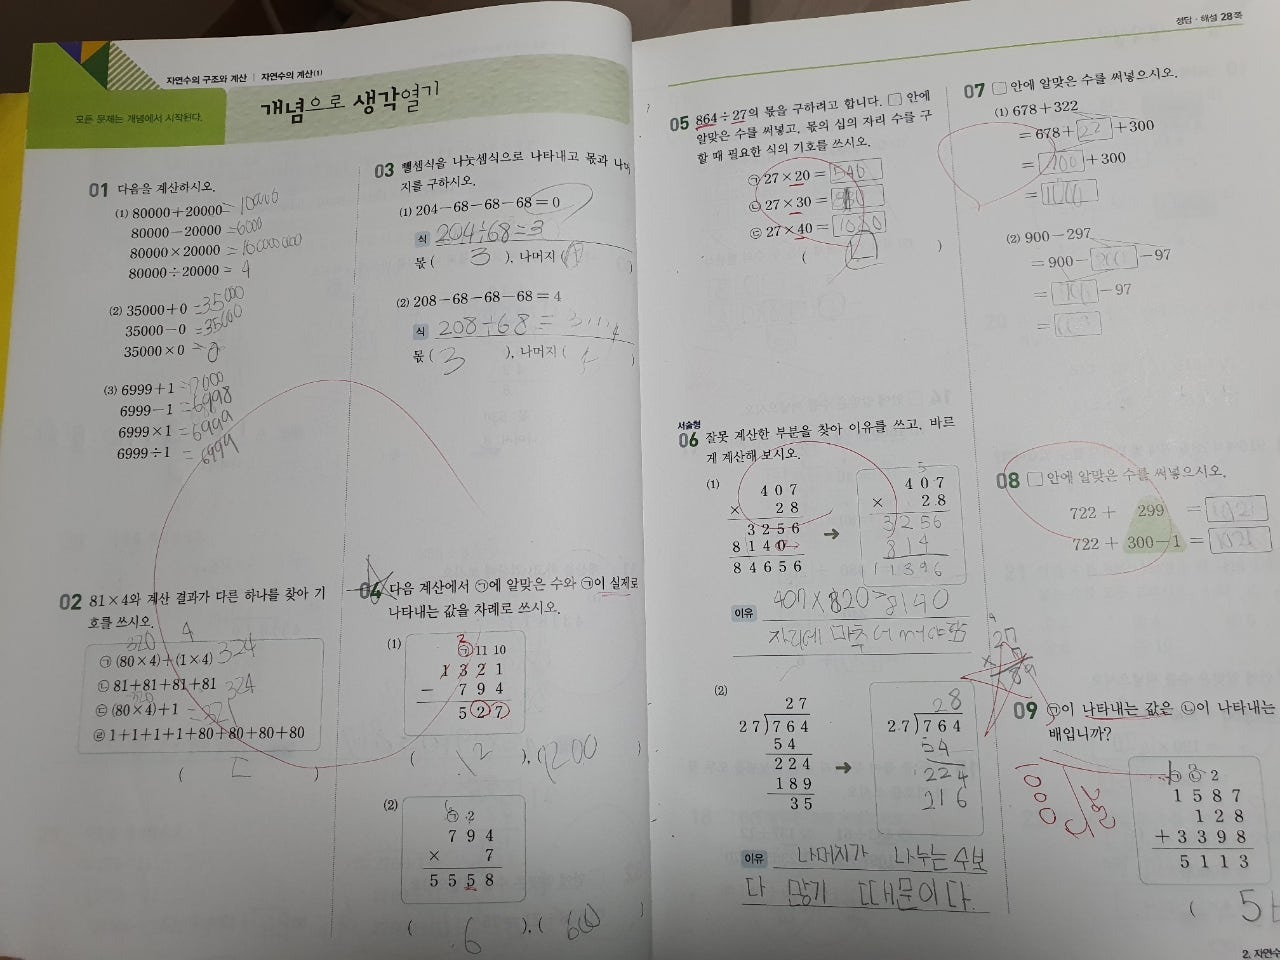 자연수의 구조와 계산 | 자연수의 계산(1)
모든 문제는 개념에서 시작된다.
개념으로 생각열기
01 다음을 계산하시오.
(1) 80000+20000= 100000
80000−20000 =6000
80000×20000 =1600000000
80000÷20000 = 4
(2) 35000+0 =35000
35000−0 =35000
35000×0 = 0
(3) 6999+1 =7000
6999−1 =6998
6999×1 =6999
6999÷1 = 6999
02 81×4와 계산 결과가 다른 하나를 찾아 기
호를 쓰시오.
320 4
㉠ (80×4)+(1×4) 324
㉡ 81+81+81+81 324
320
㉢ (80×4)+1 =321
㉣ 1+1+1+1+80+80+80+80
( ㄷ )
03 뺄셈식을 나눗셈식으로 나타내고 몫과 나머
지를 구하시오.
(1) 204−68−68−68=0
식 204÷68=3
몫 ( 3 ), 나머지 ( 0 )
(2) 208−68−68−68=4
식 208÷68=3...4
몫 ( 3 ), 나머지 ( 4 )
04 다음 계산에서 ㉠에 알맞은 수와 ㉠이 실제로
나타내는 값을 차례로 쓰시오.
(1)
2
㉠ 11 10
1 3 2 1
− 7 9 4
5 2 7
( 12 ), ( 1200 )
(2)
6
㉠ 2
7 9 4
× 7
5 5 5 8
( 6 ), ( 600 )
정답·해설 28쪽
05 864÷27의 몫을 구하려고 합니다. □ 안에
알맞은 수를 써넣고, 몫의 십의 자리 수를 구
할 때 필요한 식의 기호를 쓰시오.
㉠ 27×20= 540
㉡ 27×30= 810
㉢ 27×40= 1080
( ㄴ )
서술형
06 잘못 계산한 부분을 찾아 이유를 쓰고, 바르
게 계산해 보시오.
(1)
4 0 7
× 2 8
3 2 5 6
8 1 4 0
8 4 6 5 6
➔
5
4 0 7
× 2 8
3 2 5 6
8 1 4
1 1 3 9 6
이유 407×820>8140
자리에 맞추어 써야함
(2)
2 7
2 7 ) 7 6 4
5 4
2 2 4
1 8 9
3 5
➔
2 8
2 7 ) 7 6 4
5 4
2 2 4
2 1 6
이유 나머지가 나누는 수보
다 많기 때문이다.
07 □ 안에 알맞은 수를 써넣으시오.
(1) 678+322
=678+ 22 +300
= 700 +300
= 1000
(2) 900−297
=900− −97
= −97
= 603
08 □ 안에 알맞은 수를 써넣으시오.
722 + 299 = 1021
722 + 300−1 = 1021
09 ㉠이 나타내는 값은 ㉡이 나타내는
배입니까?
㉠ ㉡ 2
1 5 8 7
1 2 8
+ 3 3 9 8
5 1 1 3
( 5
2. 자연수